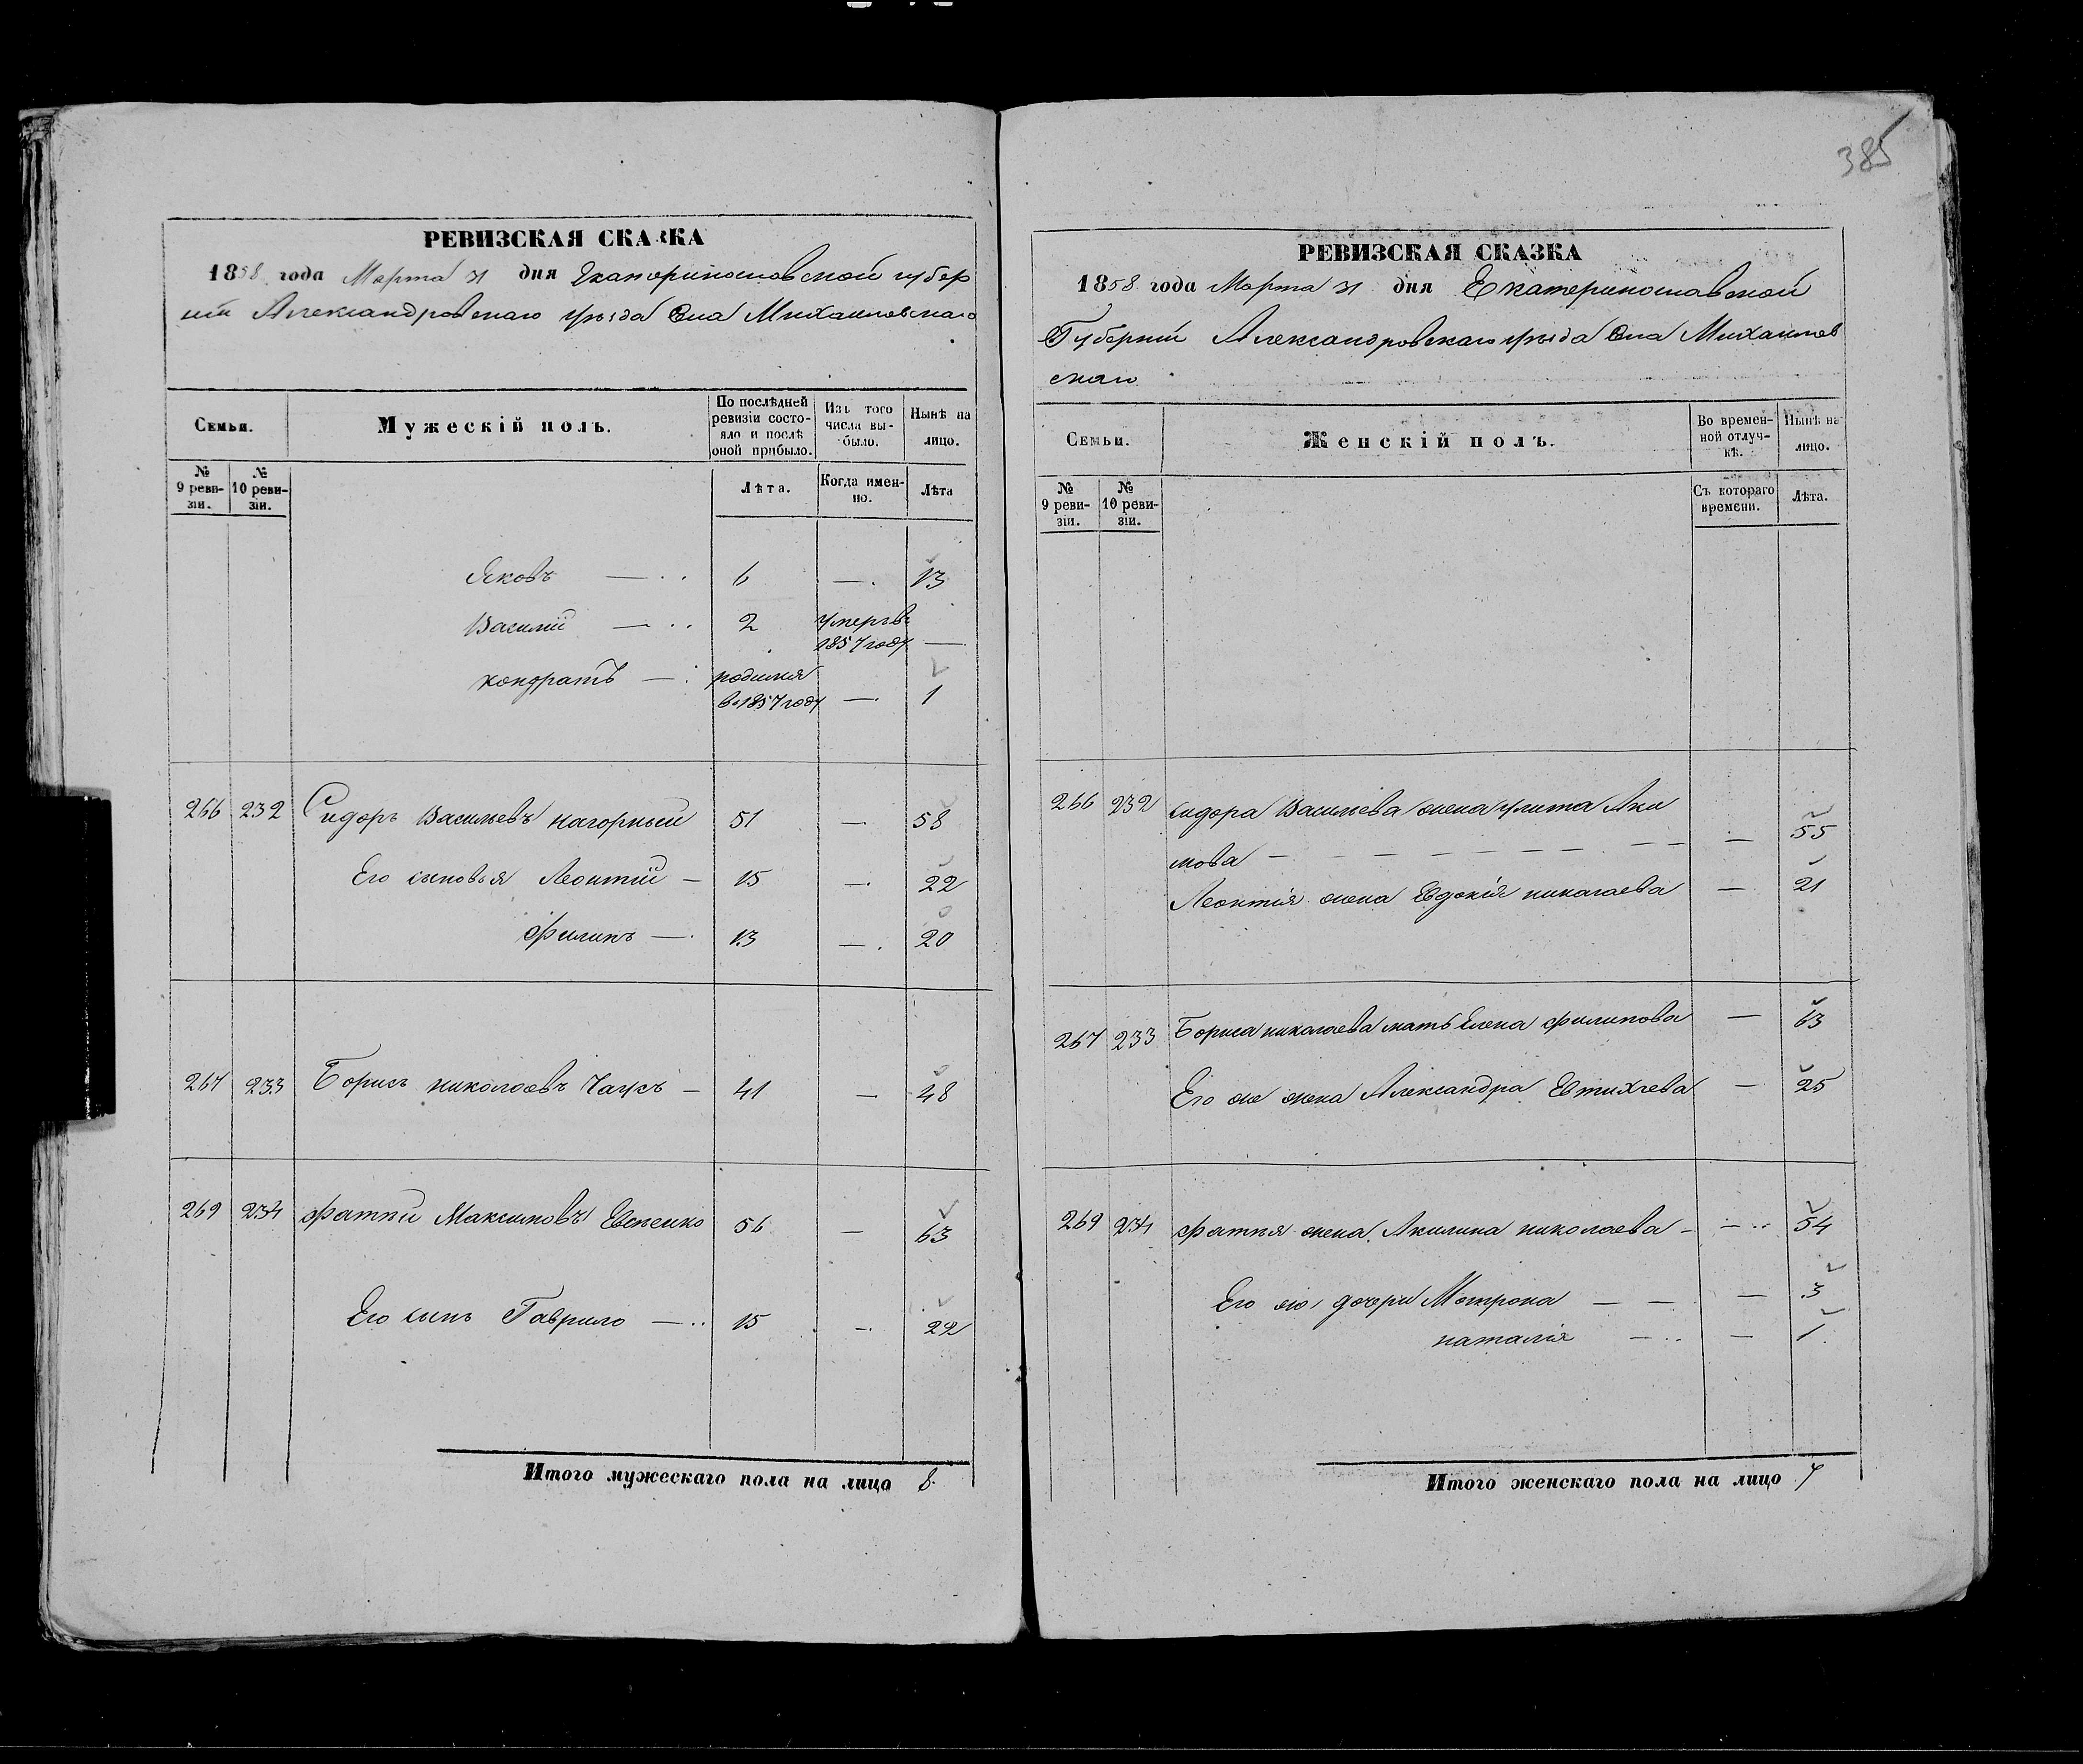 385
РЕВИЗСКАЯ СКАЗКА
1858 года Марта 31 дня Екатеринославской губер
нии Александровскаго уѣзда Села Михайловскаго
Семьи.
Мужескій полъ.
По послѣдней ревизіи состояло и послѣ оной прибыло.
Изъ того числа выбыло.
Нынѣ на лицо.
№ 9 ревизіи.
№ 10 ревизіи.
Лѣта.
Когда именно.
Лѣта
Яковъ — 6 — 13
Василий — 2 умеръ въ 1857 году —
кондратъ — родился в 1857 году — 1
266 232 Сидоръ Васильевъ нагорный 51 — 58
Его сыновья Леонтий — 15 — 22
Филипъ — 13 — 20
267 233 Борисъ николаевъ Чаусъ — 41 — 48
269 234 Фатий Максимовъ 56 — 63
Его сынъ Гаврило — 15 — 22
Итого мужескаго пола на лицо 8
РЕВИЗСКАЯ СКАЗКА
1858 года Марта 31 дня Екатеринославской
Губернии Александровскаго уѣзда Села Михайлов
скаго
Семьи.
Женскій полъ.
Во временной отлучкѣ.
Нынѣ на лицо.
№ 9 ревизіи.
№ 10 ревизіи.
Съ котораго времени.
Лѣта.
266 232 сидора Васильева жена улита Аки
мова — — — — — — — — — 55
Леонтія жена Евдокія николаева — 21
267 233 Бориса николаева мать Елена филипова — 63
Его же жена Александра Евтихиева — 25
269 234 фатия жена Акилина николаева — — 54
Его же дочери Мотрона — — — 3
наталія — — 1
Итого женскаго пола на лицо 7